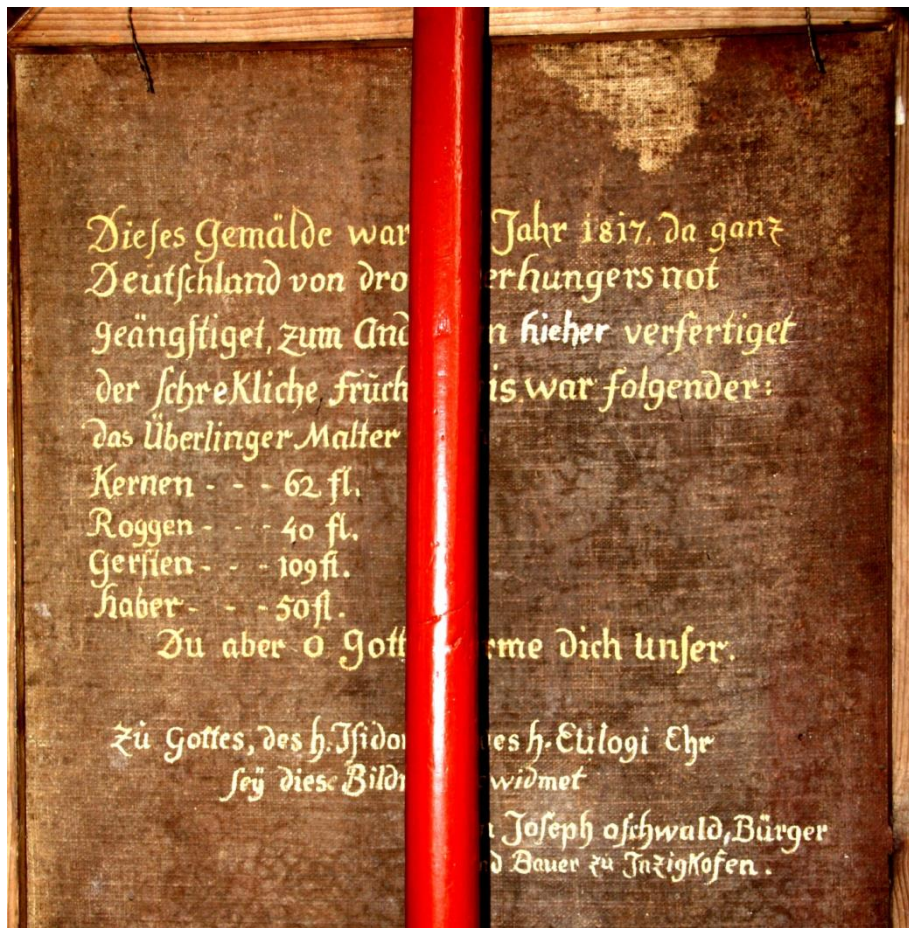 Dieses Gemälde war Jahr 1817, da ganz
Deutschland von dro erhungers not
geängstiget, zum And n hieher verfertiget
der schrekliche Früch is war folgender:
das Überlinger Malter
Kernen - - - 62 fl.
Roggen - - - 40 fl.
Gersten - - - 109 fl.
Haber - - - 50 fl.
Du aber O Gott rme dich unser.
Zu Gottes, des h. Isidor es h. Eulogi Ehr
seÿ diese Bildn widmet
n Joseph Oschwald, Bürger
d Bauer zu Inzigkofen.